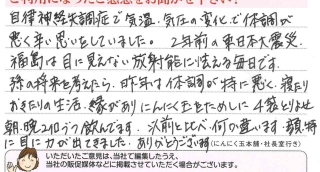 ご利用になったご感想をお聞かせ下さい!
自律神経失調症で気温、気圧の変化で体調が
悪く辛い思いをしていました。2年前の東日本大震災、
福島は目に見えない放射能に怯える毎日です。
孫の将来を考えたら、昨年は体調が特に悪く、寝たり
おきたりの生活、縁がありにんにく玉をためしに4袋とりよせ
朝、晩2粒づつ飲んでます。以前と比べ何か違います。顔、特
に目に力が出てきました。ありがとうございます
(にんにく玉本舗・社長室行き)
いただいたご意見は、当社で編集したうえ、
当社の販促媒体などに掲載させていただく場合がございます。